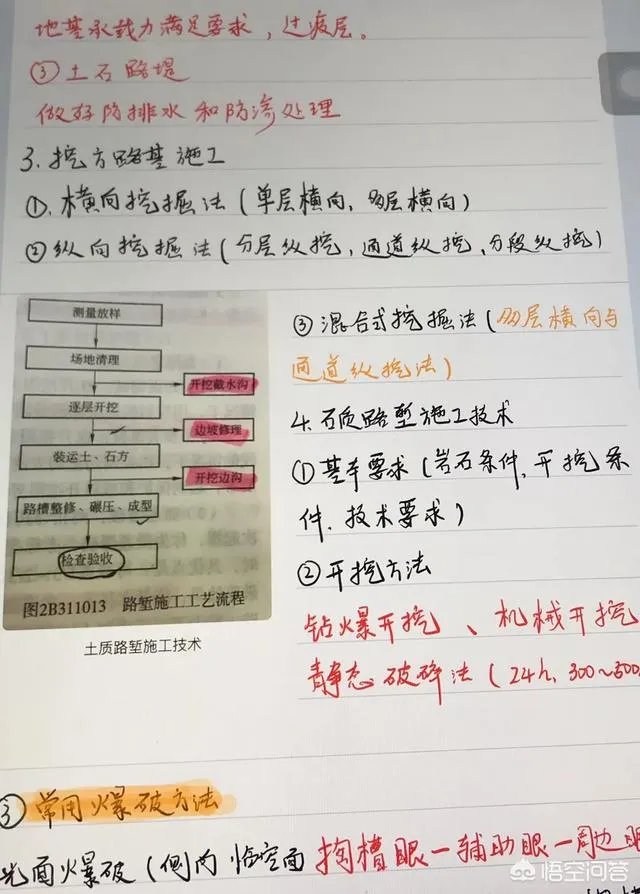 地基承载力满足要求，过渡层。
③土石路堤
做好防排水和防渗处理
3.挖方路基施工
①.横向挖掘法（单层横向，多层横向）
②纵向挖掘法（分层纵挖，通道纵挖，分段纵挖）
测量放样
场地清理
开挖截水沟
逐层开挖
边坡修理
装运土、石方
开挖边沟
路槽整修、碾压、成型
检查验收
图2B311013 路堑施工工艺流程
土质路堑施工技术
③混合式挖掘法（多层横向与
通道纵挖法）
4.石质路堑施工技术
①基本要求（岩石条件，开挖条
件，技术要求）
②开挖方法
钻爆开挖、机械开挖
静态破碎法（24h，300~500
③常用爆破方法
光面爆破（侧向临空面 掏槽眼一辅助眼一周边眼
悟空问答